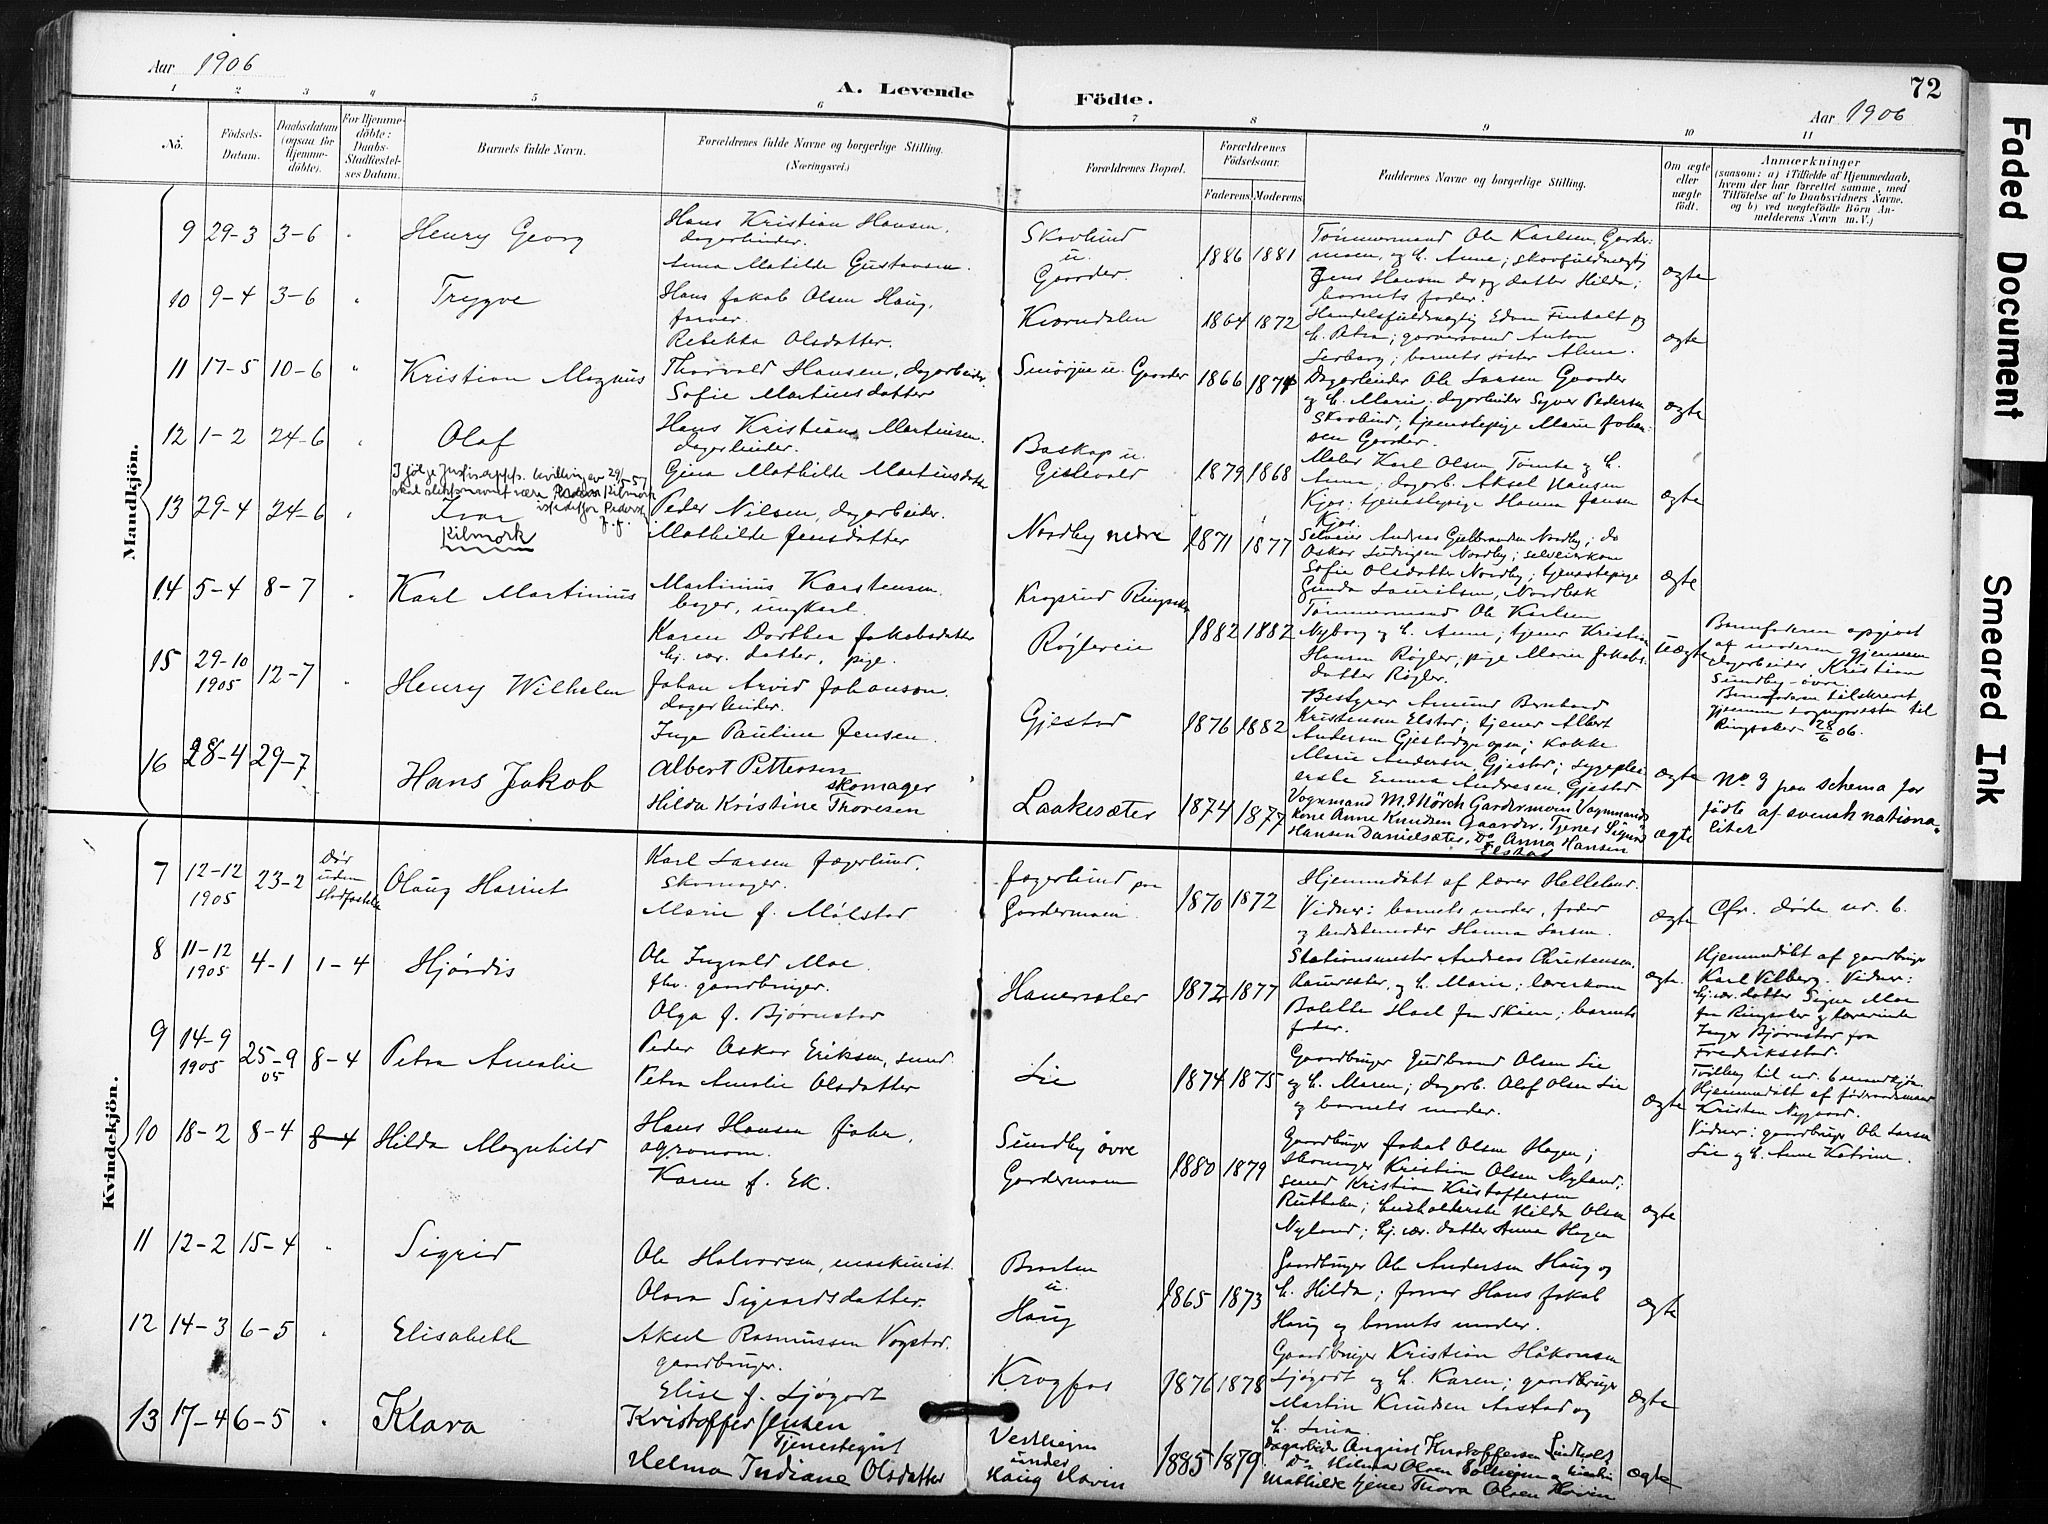 Aar 1906
A. Levende Födte.
72
Aar 1906
1 2 3 4 5 6 7 8 9 10 11
No.
Födsels-Datum.
Daabsdatum (ogsaa for Hjemme-döbte).
For Hjemme-döbte: Daabs-Stadfæstel-ses Datum.
Barnets fulde Navn.
Forældrenes fulde Navne og borgerlige Stilling.
(Næringsvei.)
Forældrenes Bopæl.
Forældrenes Födselsaar.
Faderens. Moderens.
Faddernes Navne og borgerlige Stilling.
Om ægte eller uægte födt.
Anmærkninger
(saasom: a) i Tilfælde af Hjemmedaab,
hvem der har forrettet samme, med
Tilföielse af to Daabsvidners Navne.
og b) ved uægtefödte Börn An-
melderens Navn m. V.)
Mandkjön.
9 29-3 3-6 " Henry Georg
Hans Kristian Hansen,
dagarbeider.
Anna Matilde Gustavsen.
Skovlund
u.
Gaarder.
1886 1881
Tømmermand Ole Karlsen, Garder-
moen, og h. Anne; skovfuldmægtig
Jens Hansen do og datter Hilda;
barnets fader.
ægte
10 9-4 3-6 " Trygve
Hans Jakob Olsen Haug,
farver.
Rebekka Olsdatter.
Kverndalen
1864 1872
Handelsfuldmægtig Edvin Finholt og
h. Petra; garversvend Anton
barnets søster Alma.
ægte
11 17-5 10-6 " Kristian Magnus
Thorvald Hansen, dagarbeider.
Sofie Martinsdatter
Smörjue u. Gaarder
1866 1874
Dagarbeider Ole Larsen Gaarder
og h. Marie. dagarbeider Syver Pedersen
Skovlund, tjenestepige Marie Johan-
sen Gaarder.
ægte
12 1-2 24-6 " Olaf
Hans Kristian Martinsen.
dagarbeider.
Gina Mathilde Martinsdatter
Baskop u.
Gislevold
1879 1868
Maler Karl Olsen Tømte og h.
Anna; dagarb. Aksel Hansen
Kjos; tjenestepige Hanna Jensen
Kjos.
ægte
I følge Justisdepts. bevilling av 29/5-57
skal slektsnavnet være Kilmork
istedetfor Pedersen
13 29-4 24-6 " Ivar
Kilmork
Peder Nilsen, dagarbeider.
Mathilde Jensdatter
Nordby nedre
1871 1877
Selveier Andreas Gulbranden Nordby; do
Oskar Ludvigsen Nordby; selveierkone
Sofie Olsdatter Nordby; tjenestepige
Gunda Lauritsen, Nordbek
ægte
14 5-4 8-7 " Karl Martinius
Martinius Karstensen.
bager, ungkarl.
Karen Dorthea Jakobsdatter
hj. vær. datter, pige.
Krogsrud Ringsaker
Røgleveie
1882 1882
Tømmermand Ole Karlsen
Nyborg og h. Anne; tjener Kristian
Hansen Røgler; pige Marie Jakobs-
datter Røgler.
uægte
Barnefaderen opgivet
af moderen gjennem
dagarbeider Kristian
Sundby-øvre.
Barnefaderen tilskrevet
gjennem sogneprесten til
Ringsaker 28/6 06.
15 29-10 1905 12-7 " Henry Wilhelm
Johan Arvid Johanson.
dagarbeider.
Inga Pauline Jensen.
Gjestad
1876 1882
Bestyrer Amund Bernhard
Kristensen Elstad; tjener Albert
Andersen Gjestad; kokke
Marie Andersen Gjestad; sygeplei-
erske Emma Andresen, Gjestad
ægte
No 3 paa schema for
födte af svensk nationa-
litet
16 28-4 29-7 Hans Jakob
Albert Pettersen
skomager
Hilda Kristine Thoresen
Laakesæter
1874 1877
Vognmand M. Mörch Gardermoen. Vognmands-
kone Anne Knudsen Gaarder. Tjener Sigurd
Hansen Danielsæter. Do Anna Hansen
Elstad
ægte
Kvindekjön.
7 12-12 1905 23-2 Dør uden stadfæstelse Olaug Harriet
Karl Larsen Jægerlund.
Skomager.
Marie f. Mølstad
Jægerlund paa
Gardermoen.
1870 1872
Hjemmedøbt af lærer Helleland.
Vidner: barnets moder, fader
og Hanna Larsen.
ægte
Cfr. døde nr. 6.
8 11-12 1905 4-1 1-4 Hjördis
Ole Ingvald Moe.
fhv. gaardbruger.
Olga f. Bjørnstad
Hauersæter
1872 1877
Stationsmester Andreas Christensen,
Hauersæter, og h. Marie; lærerkone
Bolette Hoel fra Skien; barnets
fader.
ægte.
Hjemmedøbt af gaardbruger
Karl Vilberg. Vidner:
hj. vær. datter Signe Moe
fra Ringsaker og lærerinde
Inger Bjørnstad fra
Fredriksstad.
9 14-9 1905 25-9 05 8-4 Petra Amalie
Peder Oskar Eriksen, smed.
Petra Amalie Olsdatter
Lie
1874 1875
Gaardbruger Gudbrand Olsen Lie
og h. Maren; dagarb. Olaf Olsen Lie
og barnets moder.
ægte
Tvilling til nr. 6 mandkjøn.
Hjemmedøbt af
Kristen Nygaard.
Vidner: gaardbruger Ole Larsen
Lie og h. Anne Katrine.
10 18-2 8-4 8-4 Hilda Magnhild
Hans Hansen
agronom.
Karen f. Ek.
Sundby øvre
Gardermoen
1880 1879
Gaardbruger Jakob Olsen Hagen;
Kristian Olsen Nyland;
smed Kristian Kristoffersen
husholderske Hilda Olsen
Nyland; hj. vær. datter Anna Hagen
ægte
11 12-2 15-4 " Sigrid
Ole Halvorsen, maskinist.
Olava Sigvardsdatter.
Braaten
u.
Haug
1865 1873
Gaardbruger Ole Andersen Haug og
h. Hilda; farver Hans Jakob
Haug og barnets moder.
ægte
12 14-3 6-5 " Elisabeth
Aksel Rasmussen Vogstad.
gaardbruger.
Elise f. Ljøgodt
Krogfos
1876 1878
Gaardbruger Kristian Håkonsen
Ljøgodt og h. Karen; gaardbruger
Martin Knudsen Aastad og
h. Lina.
ægte
13 17-4 6-5 " Klara
Kristoffer Jensen
Tjenestegut
Helma Indiane Olsdatter
Vestheim
under
Haug Hovin
1885 1879
Dagarbeider August Kristoffersen Lindholt
Do Hilmar Olsen Solheim og
Mathilde tjener Thora Olsen Hovin
ægte
Faded Document
Smeared Ink